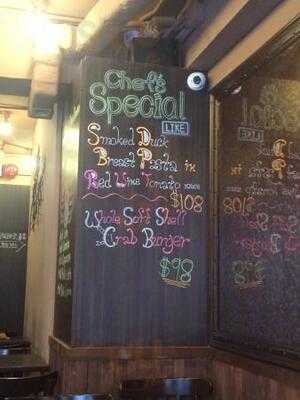 Chef's
Special
LIKE
Smoked Duck
Breast Pasta in
Red Wine Tomato sauce
$108
Whole Soft Shell
Crab Burger
$98